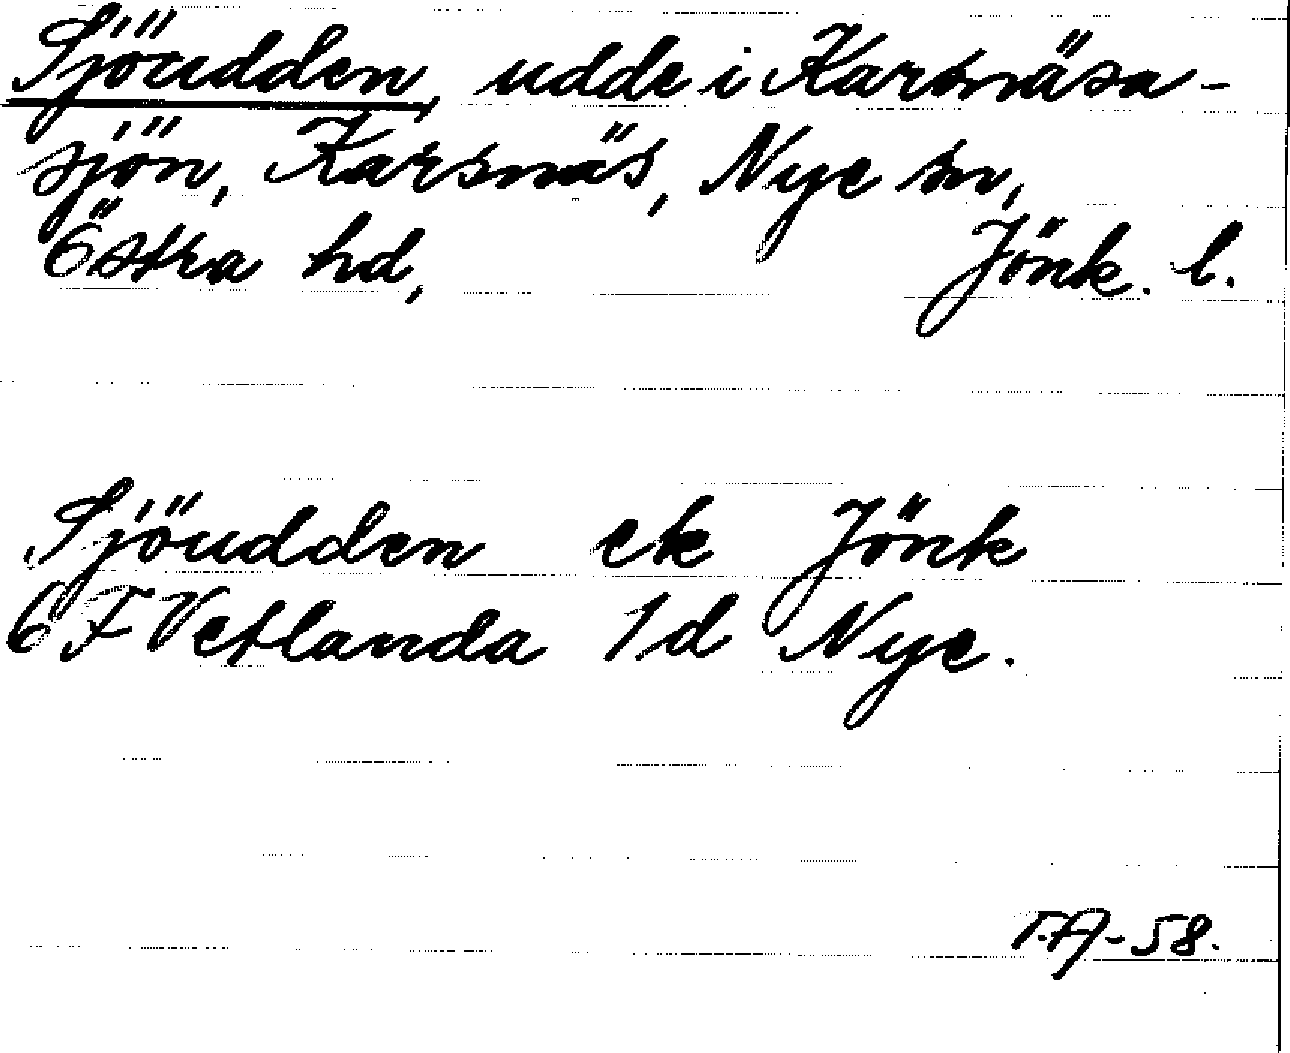 Sjöudden, udde i Karsnäsa-
sjön, Karsnäs, Nye sn,
Östra hd, Jönk. l.
Sjöudden ek Jönk
6 F Vetlanda 1 d Nye.
T.A-58.